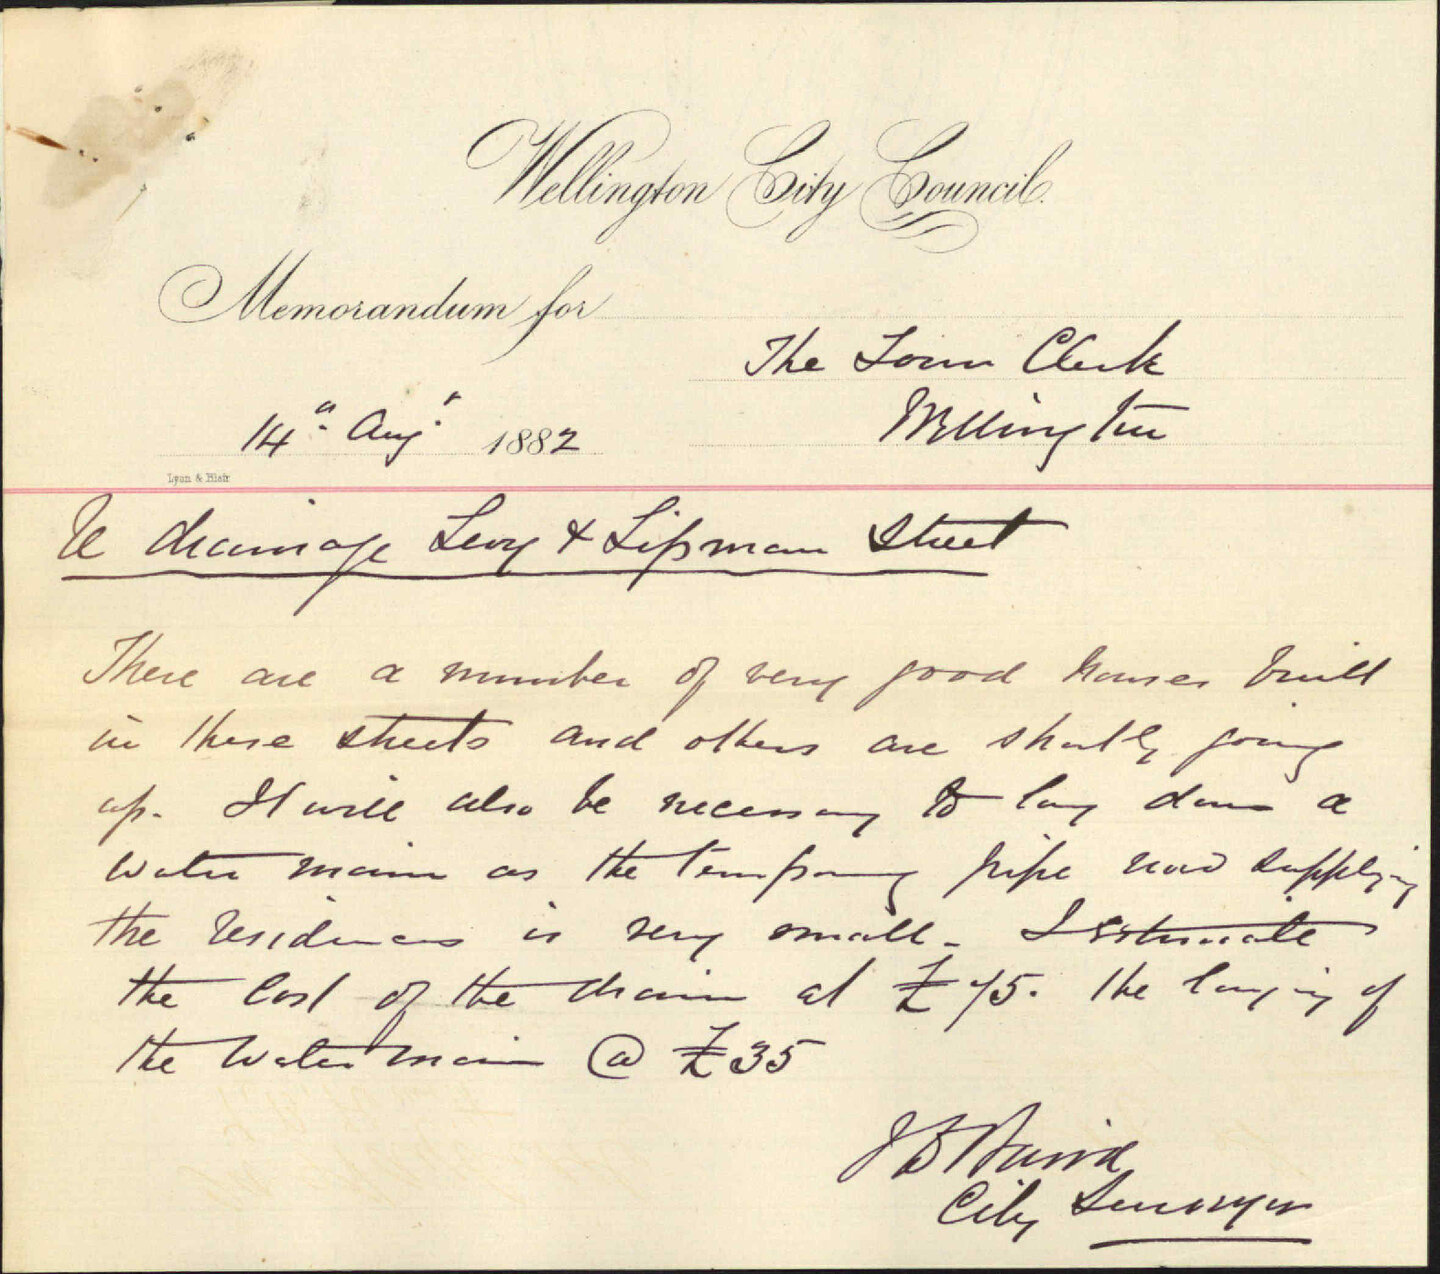 Wellington City Council.
Memorandum for
The Town Clerk
Wellington
14th Augt 1882
Lyon & Blair
Re drainage Levy & Lipman Street
There are a number of very good houses built
in these streets and others are shortly going
up. It will also be necessary to lay down a
water main as the temporary pipe now supplying
the residences is very small. I estimate
the cost of the drain at £75. the laying of
the water main @ £35
J D Baird
City Surveyor